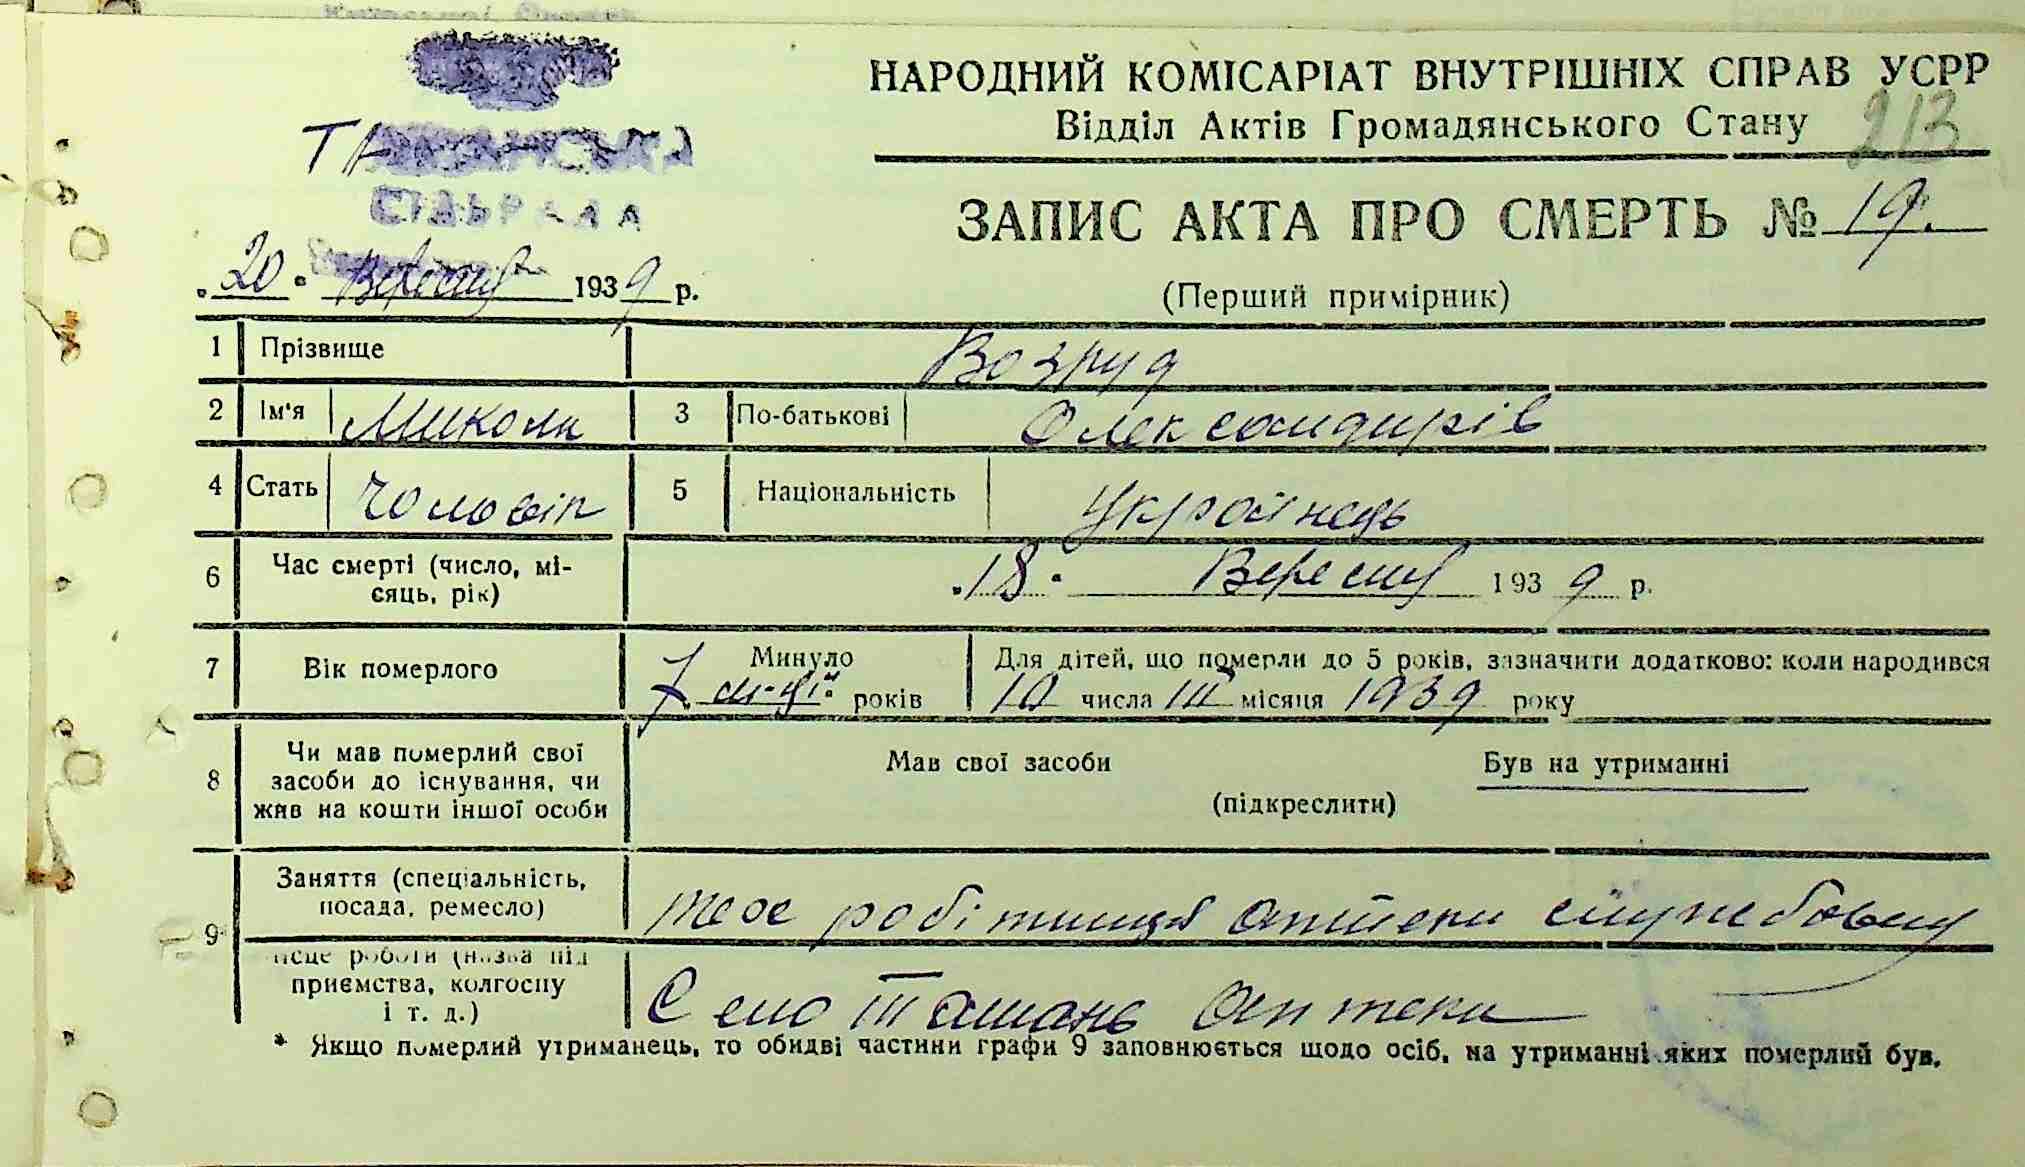 НАРОДНИЙ КОМІСАРІАТ ВНУТРІШНІХ СПРАВ УСРР
Відділ Актів Громадянського Стану
213
ЗАПИС АКТА ПРО СМЕРТЬ № 19.
(Перший примірник)
20 Вересня 1939 р.
1 Прізвище Возруд
2 Ім'я Микола 3 По-батькові Олександирів
4 Стать Чоловік 5 Національність Українець
6 Час смерті (число, мі-
сяць, рік) 18 Вересня 1939 р.
7 Вік померлого 7 м-ці Минуло років Для дітей, що померли до 5 років, зазначити додатково: коли народився
10 числа III місяця 1939 року
8 Чи мав померлий свої
засоби до існування, чи
жив на кошти іншої особи
Мав свої засоби Був на утриманні
(підкреслити)
9 Заняття (спеціальність,
посада, ремесло) робітниця аптеки
місце роботи (назва під
приємства, колгоспу
і т. д.) Село Ташань Аптека
* Якщо померлий утриманець, то обидві частини графи 9 заповнюється щодо осіб, на утриманні яких померлий був.